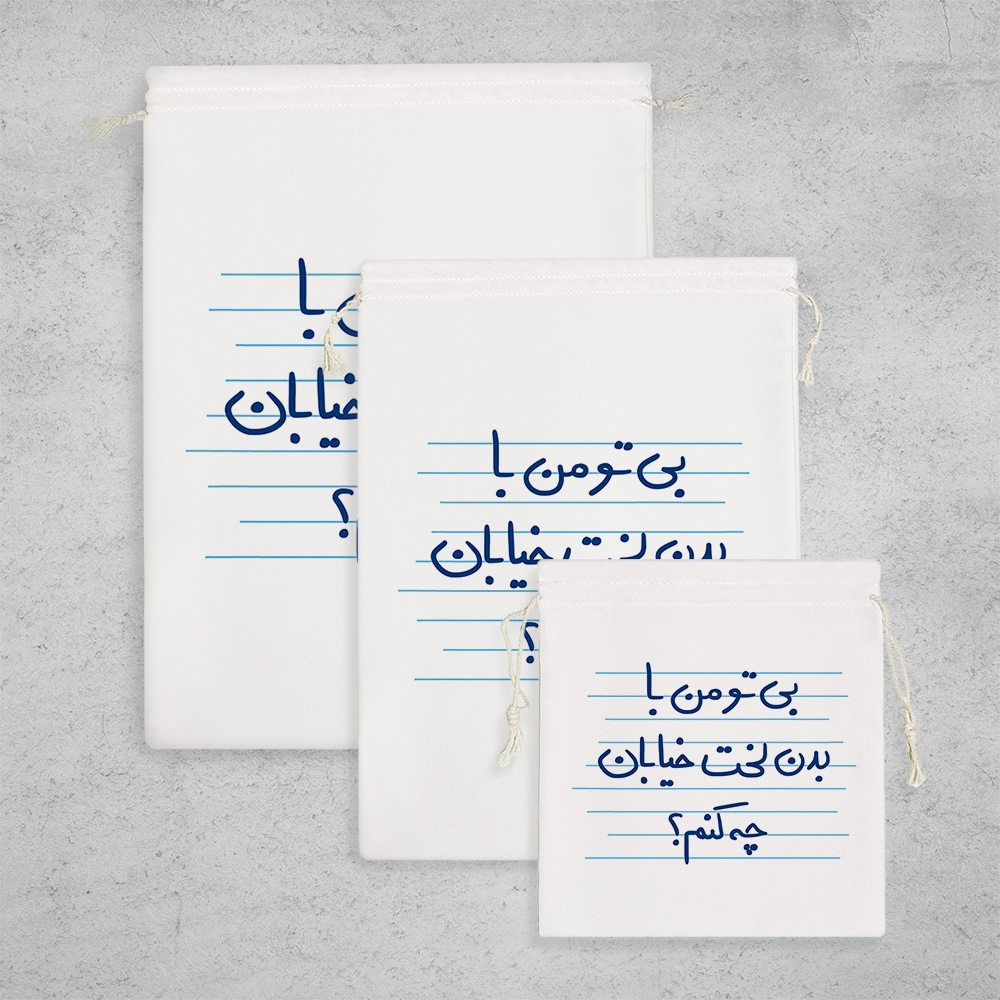 با
خیابان
؟
بی تو من با
بدن لخت خیابان
؟
بی تو من با
بدن لخت خیابان
چه کنم؟